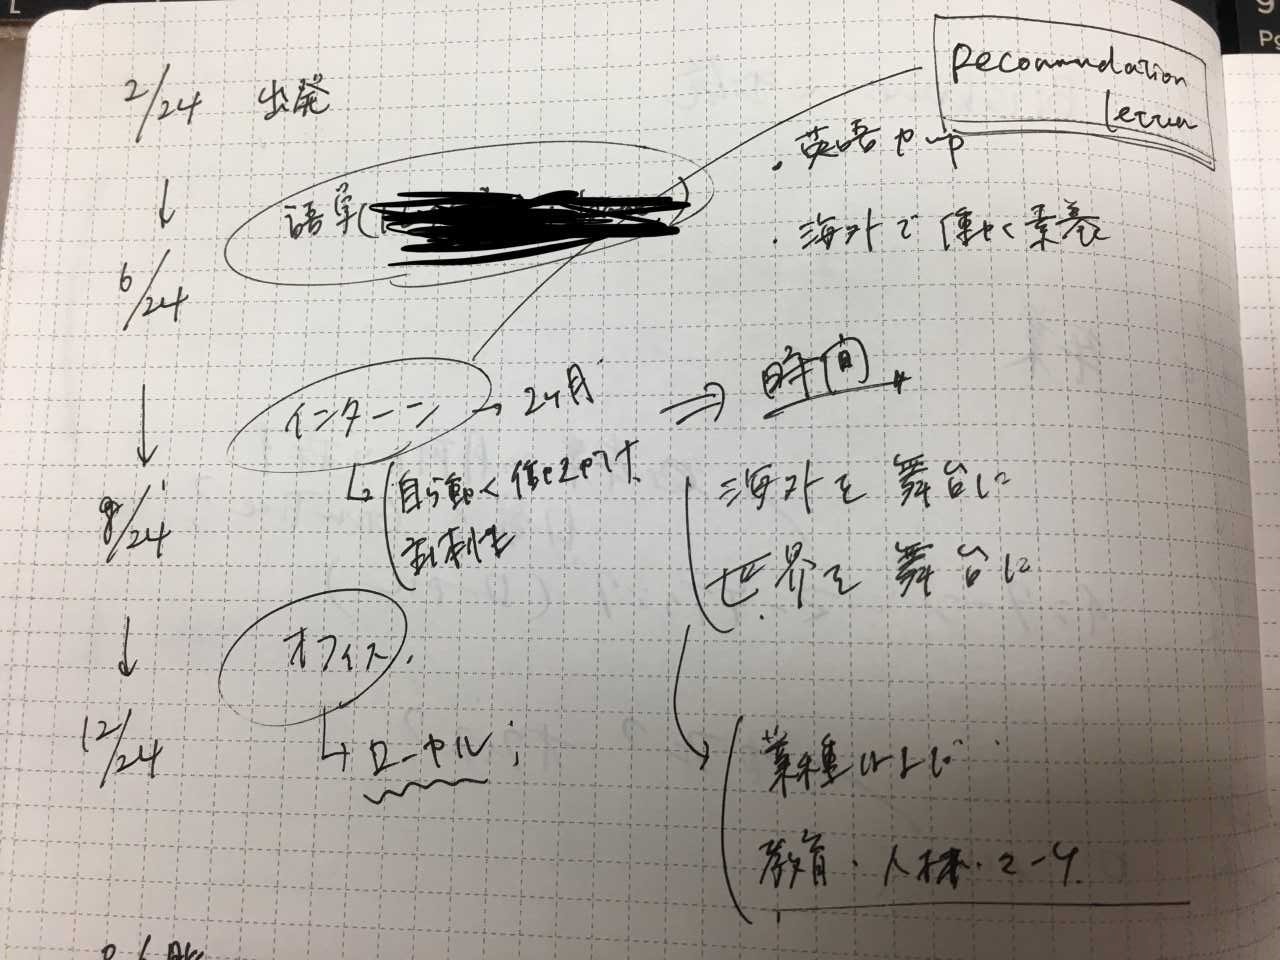 Recommendation
letter
2/24 出発
・英語力up
↓ 語学(
・海外で働く素養
6/24
インターン → 2ヶ月 ⇒ 時間
↓
自分 働く
主体性
海外を舞台に
世界を舞台に
8/24
オフィス.
↓
12/24
ローカル;
業種はなに
教育・人材・